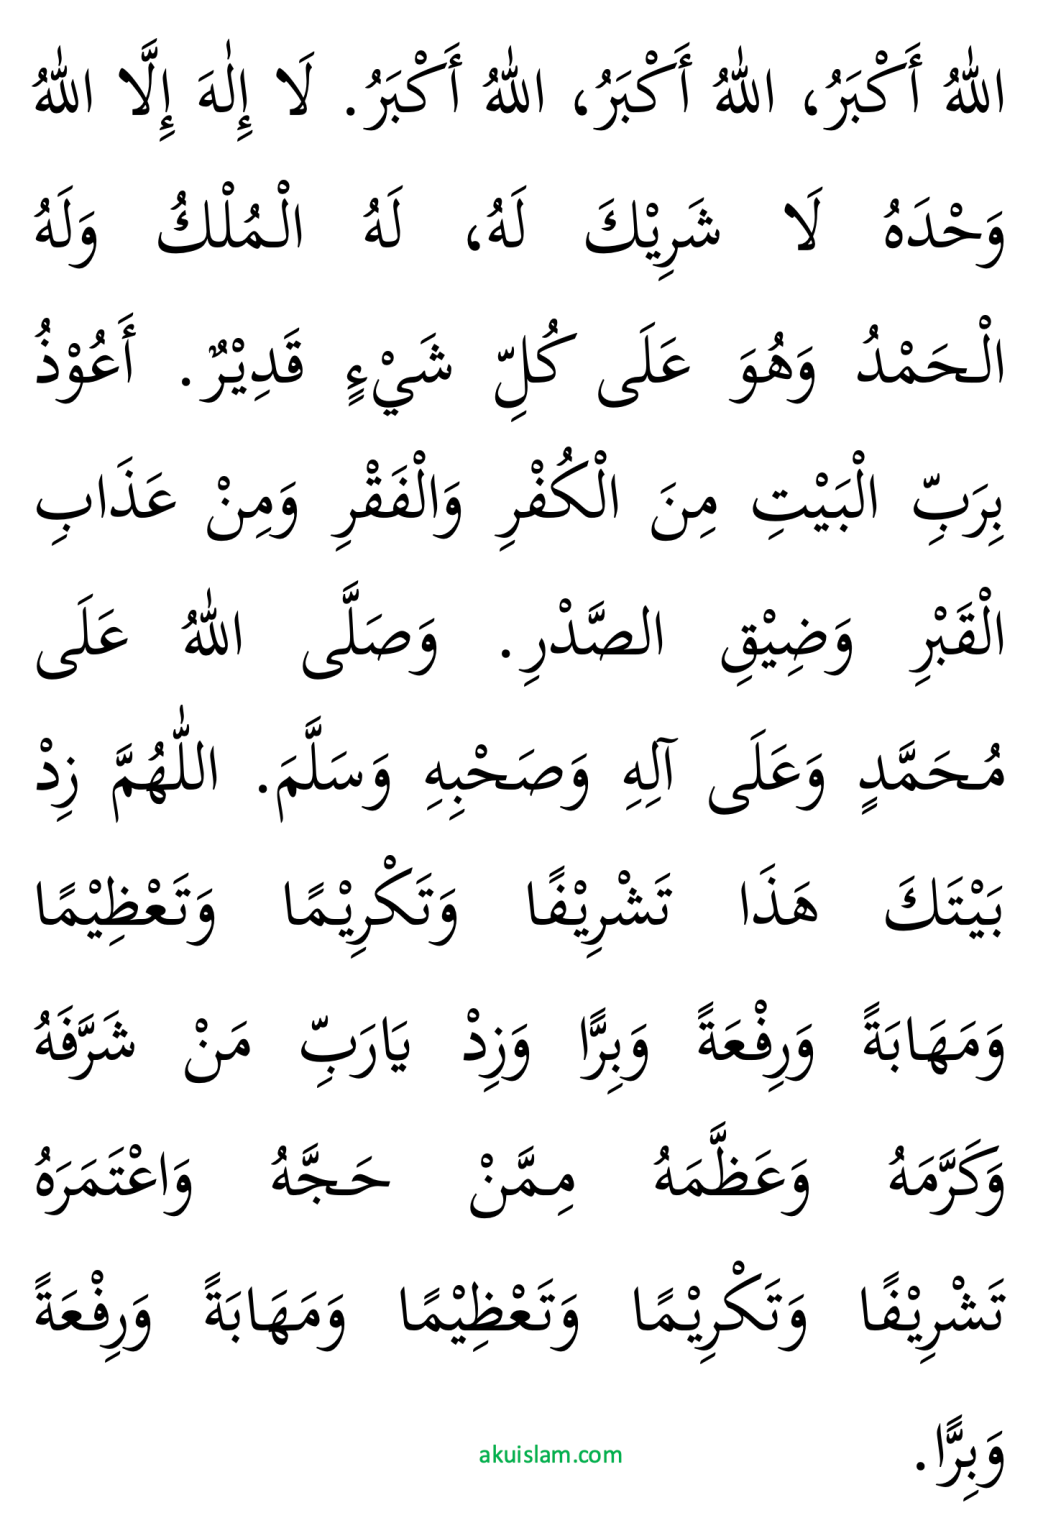 اللهُ أَكْبَرُ، اللهُ أَكْبَرُ، اللهُ أَكْبَرُ. لَا إِلٰهَ إِلَّا اللهُ
وَحْدَهُ لَا شَرِيْكَ لَهُ، لَهُ الْمُلْكُ وَلَهُ
الْحَمْدُ وَهُوَ عَلَى كُلِّ شَيْءٍ قَدِيْرٌ. أَعُوْذُ
بِرَبِّ الْبَيْتِ مِنَ الْكُفْرِ وَالْفَقْرِ وَمِنْ عَذَابِ
الْقَبْرِ وَضِيْقِ الصَّدْرِ. وَصَلَّى اللهُ عَلَى
مُحَمَّدٍ وَعَلَى آلِهِ وَصَحْبِهِ وَسَلَّمَ. اللّٰهُمَّ زِدْ
بَيْتَكَ هَذَا تَشْرِيْفًا وَتَكْرِيْمًا وَتَعْظِيْمًا
وَمَهَابَةً وَرِفْعَةً وَبِرًّا وَزِدْ يَارَبِّ مَنْ شَرَّفَهُ
وَكَرَّمَهُ وَعَظَّمَهُ مِمَّنْ حَجَّهُ وَاعْتَمَرَهُ
تَشْرِيْفًا وَتَكْرِيْمًا وَتَعْظِيْمًا وَمَهَابَةً وَرِفْعَةً
وَبِرًّا.
akuislam.com